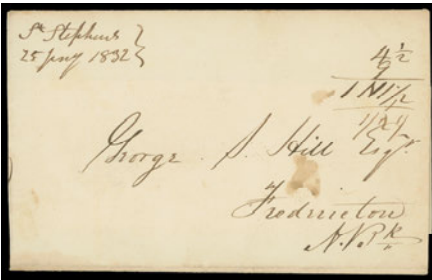 St Stephens
25 Jany 1832
4 1/2
9
George S. Hill Esqr.
Fredricton
N. Bk